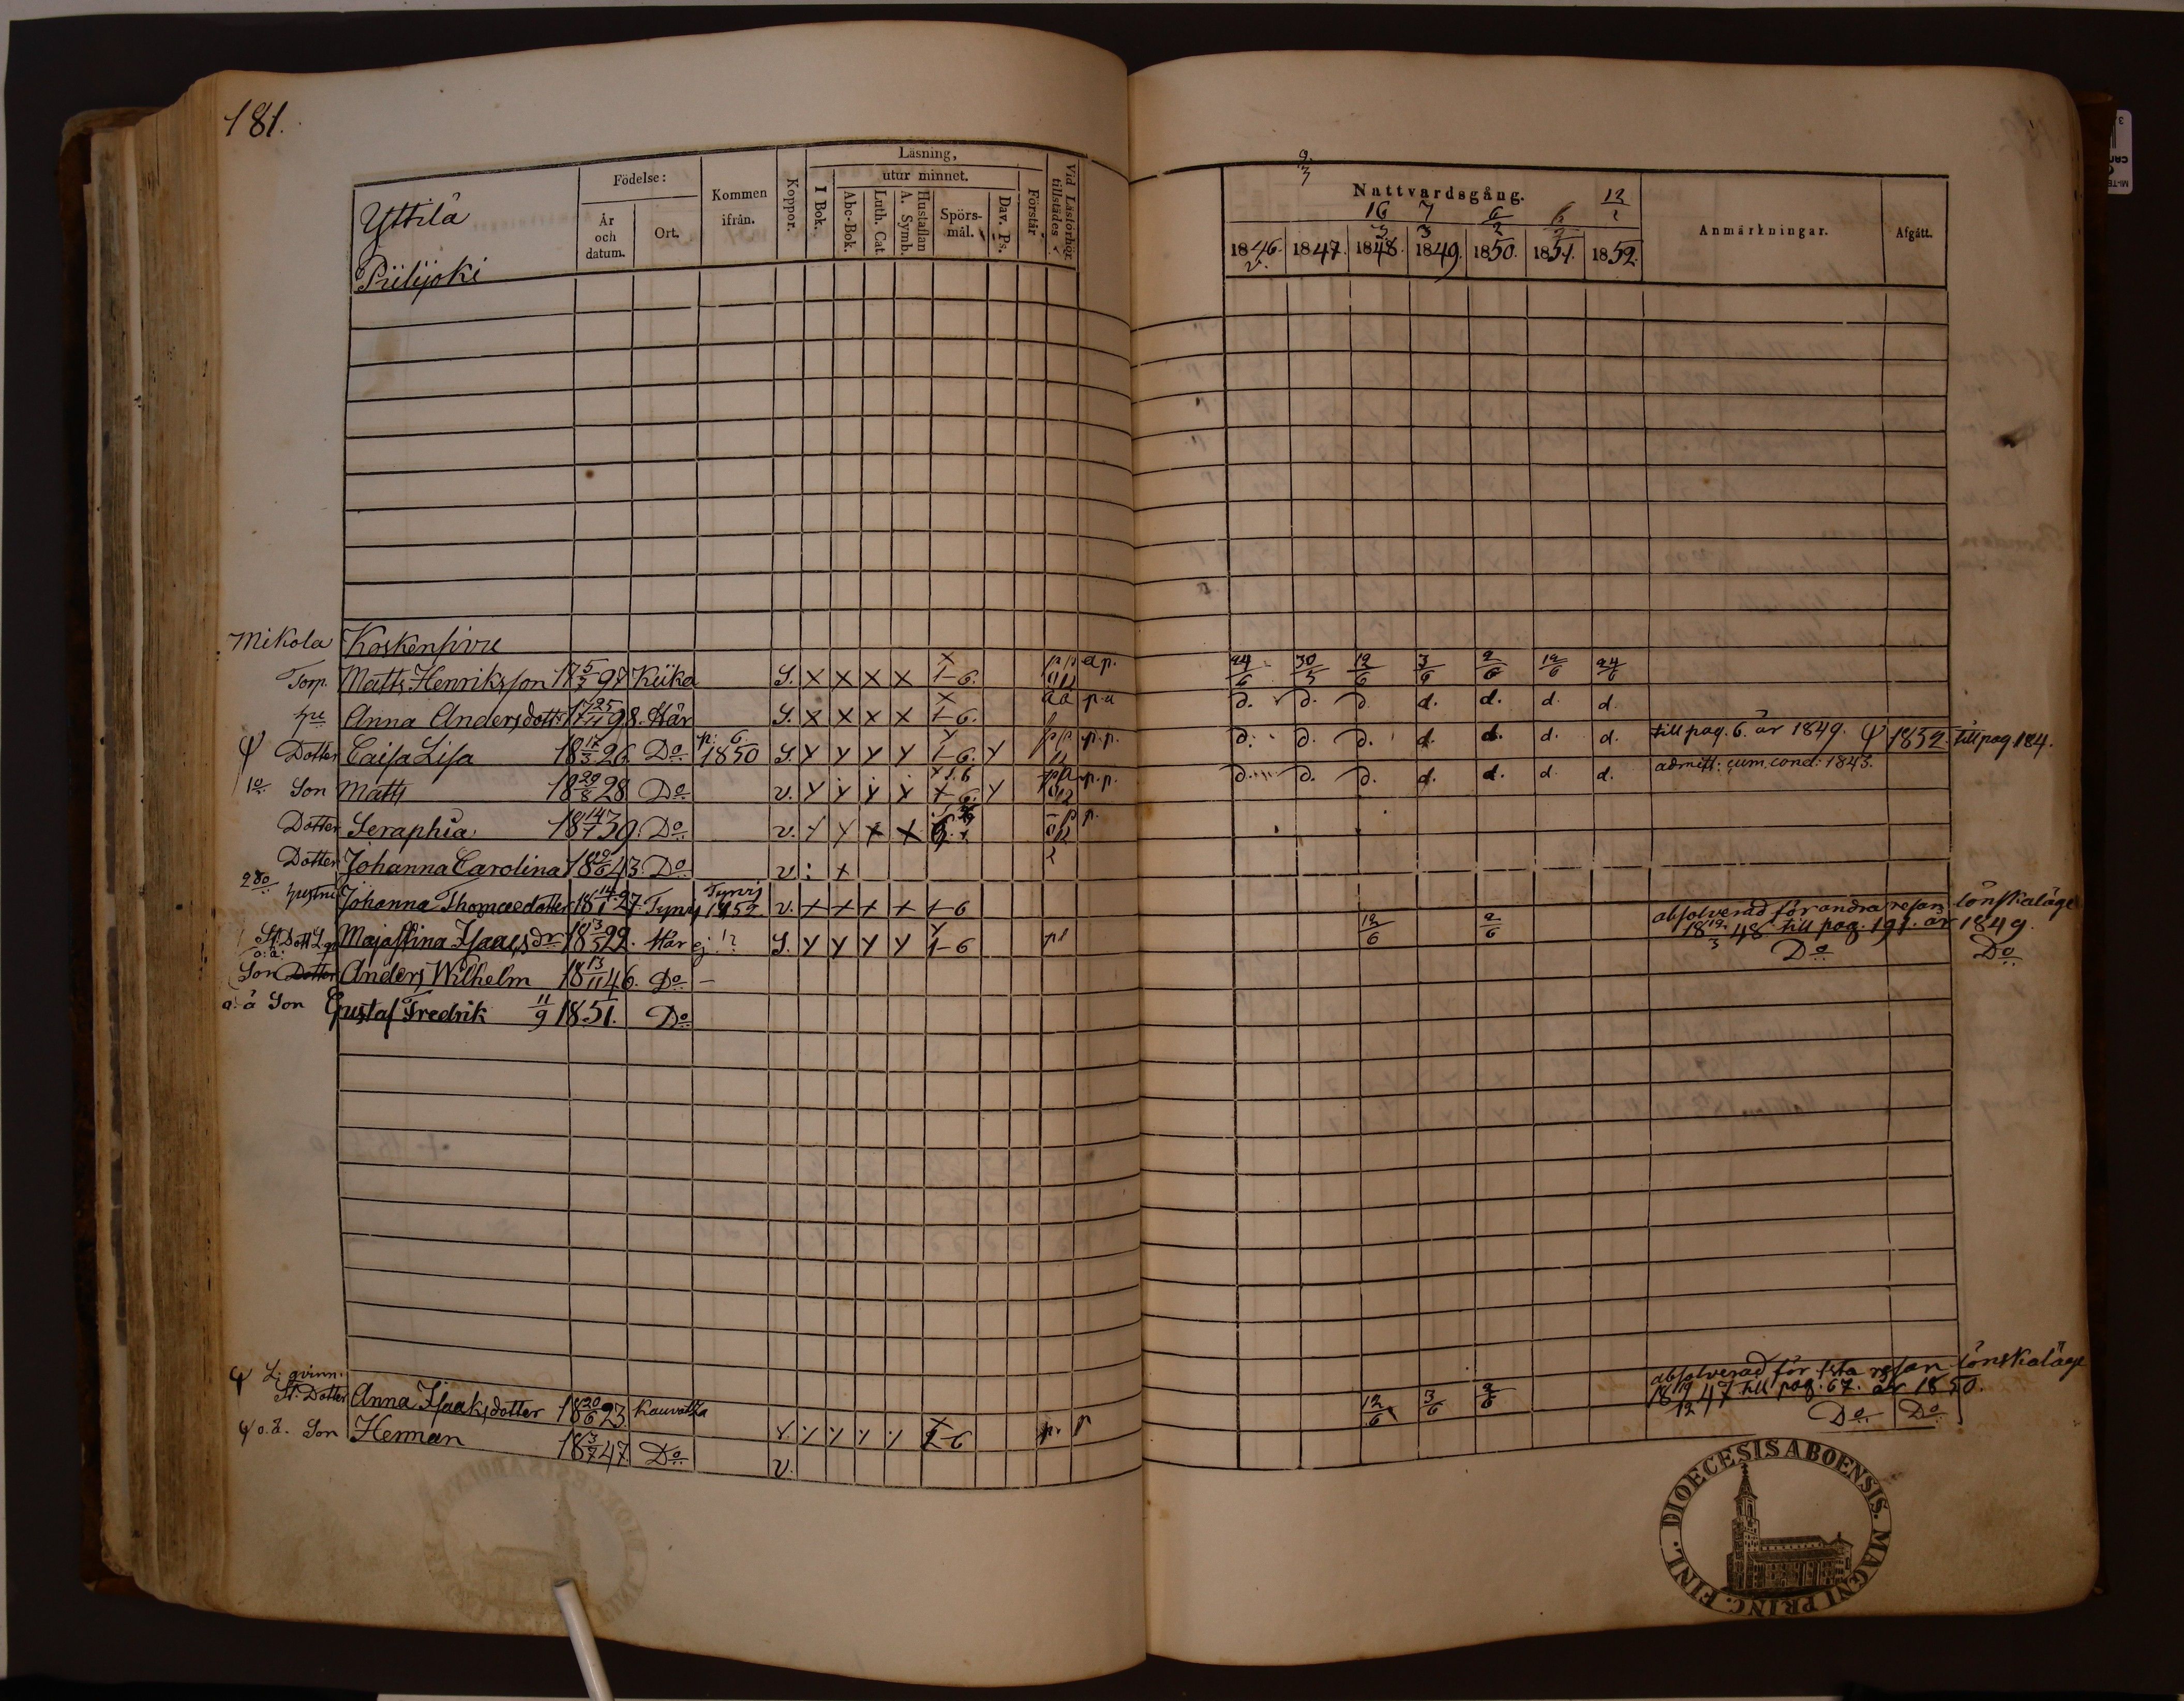 181.
Yttilä
Piilijoki
Födelse:
År och datum.
Ort.
Kommen ifrån.
Koppor.
Läsning,
I Bok.
utur minnet.
Abc-Bok.
Luth. Cat.
A. Symb.
Hustaflan
Spörsmål.
Dav. Ps.
Förstår
Vid Läsförhör tillstädes
Nattvardsgång.
1846. 1847. 1848. 1849. 1850. 1851. 1852.
Anmärkningar.
Afgått.
Mikola Koskensivu
Torp. Matts Henriksson 17 5/3 97 Kiika S. x x x x 1-6. 24/6 30/5 12/6 3/6 2/6 12/6 24/6
Anna Andersdotter 98. Här S. x x x x 1-6. d. d. d. d. d. d. d.
Dotter Caisa Lisa 18 17/3 26. Do p: 6. 1850 S. y y y y 1-6. y p.p. d. d. d. d. d. d. d. till pag. 6. år 1849. 1852. till pag 184.
Son Matts 18 29/8 28 Do v. y y y y y p.p. d. d. d. d. d. d. d. admitt: cum cond: 1843.
Dotter Seraphia 18 14/7 39. Do v. p.
Dotter Johanna Carolina 43. Do v.
2do hustru Johanna Thomasdotter 18 14/1 27. Tyrvis 1852. v. x x x x 1-6
St. Dott Majastina Isaacs dr 18 3/5 22. Här S. y y y y 1-6 12/6 2/6 absolverad för andra resan lönskaläge
18 19/3 48 till pag. 191. år 1849.
o.ä. Son Dotter Anders Wilhelm 18 13/11 46. Do Do Do
o.ä Son Gustaf Fredrik 11/9 1851. Do
L: qvinn:
St. Dotter Anna Isaksdotter 18 20/6 23 Kauvatsa 1-6 p. p 12/6 3/6 2/6 absolverad för 1sta resan lönskaläge
18 19/12 47 till pag. 67. år 1850.
o.ä. Son Herman 18 3/7 47. Do v. Do Do
DIOECESIS ABOENSIS. MAGNI PRINC. FINL.